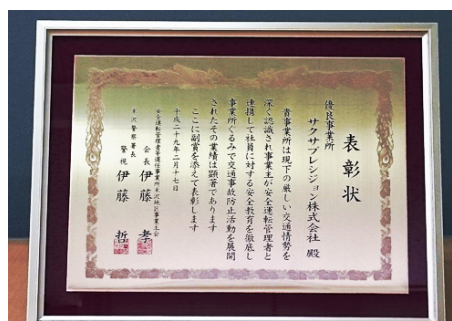 表彰状
優良事業所
サクサプレシジョン株式会社 殿
貴事業所は現下の厳しい交通情勢を
深く認識され事業主が安全運転管理者と
連携して社員に対する安全教育を徹底し
事業所ぐるみで交通事故防止活動を展開
されたその業績は顕著であります
ここに副賞を添えて表彰します
平成二十九年二月十七日
安全運転管理者等選任事業所米沢地区事業主会
会長 伊藤 孝
米沢警察署長
警視 伊藤 哲